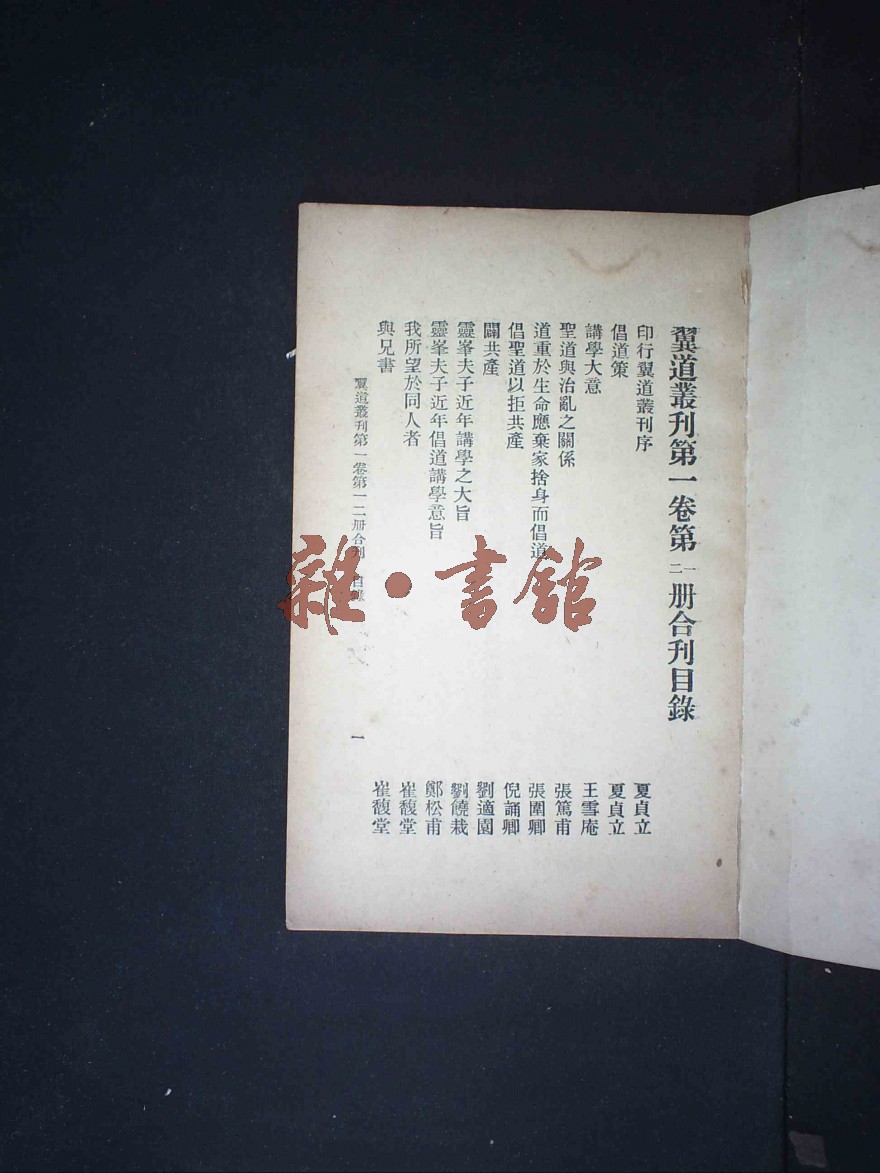 翼道叢刊第一卷第一二册合刊目錄
印行翼道叢刊序 夏貞立
倡道策 夏貞立
講學大意 王雪庵
聖道與治亂之關係 張篤甫
道重於生命應棄家捨身而倡道 張圍卿
倡聖道以拒共產 倪誦卿
闢共產 劉適園
靈峯夫子近年講學之大旨 劉饒栽
靈峯夫子近年倡道講學意旨 鄭松甫
我所望於同人者 崔馥堂
與兄書 崔馥堂
翼道叢刊第一卷第一二册合刊 目錄 一
雜·書館